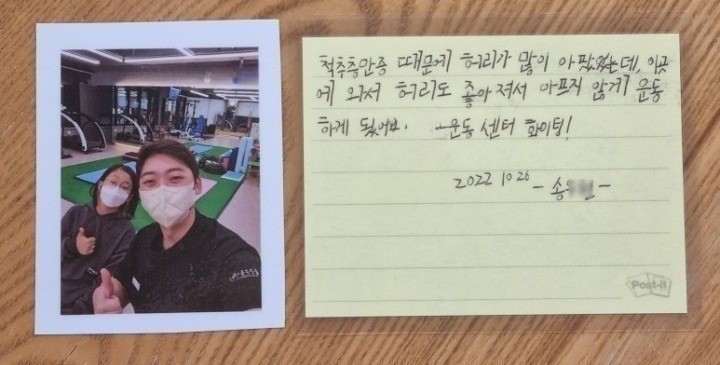 척추측만증 때문에 허리가 많이 아팠었는데, 이곳
에 와서 허리도 좋아져서 아프지 않게 운동
하게 됬어요. 운동센터 화이팅!
2022 10 26 - 송
Post-it